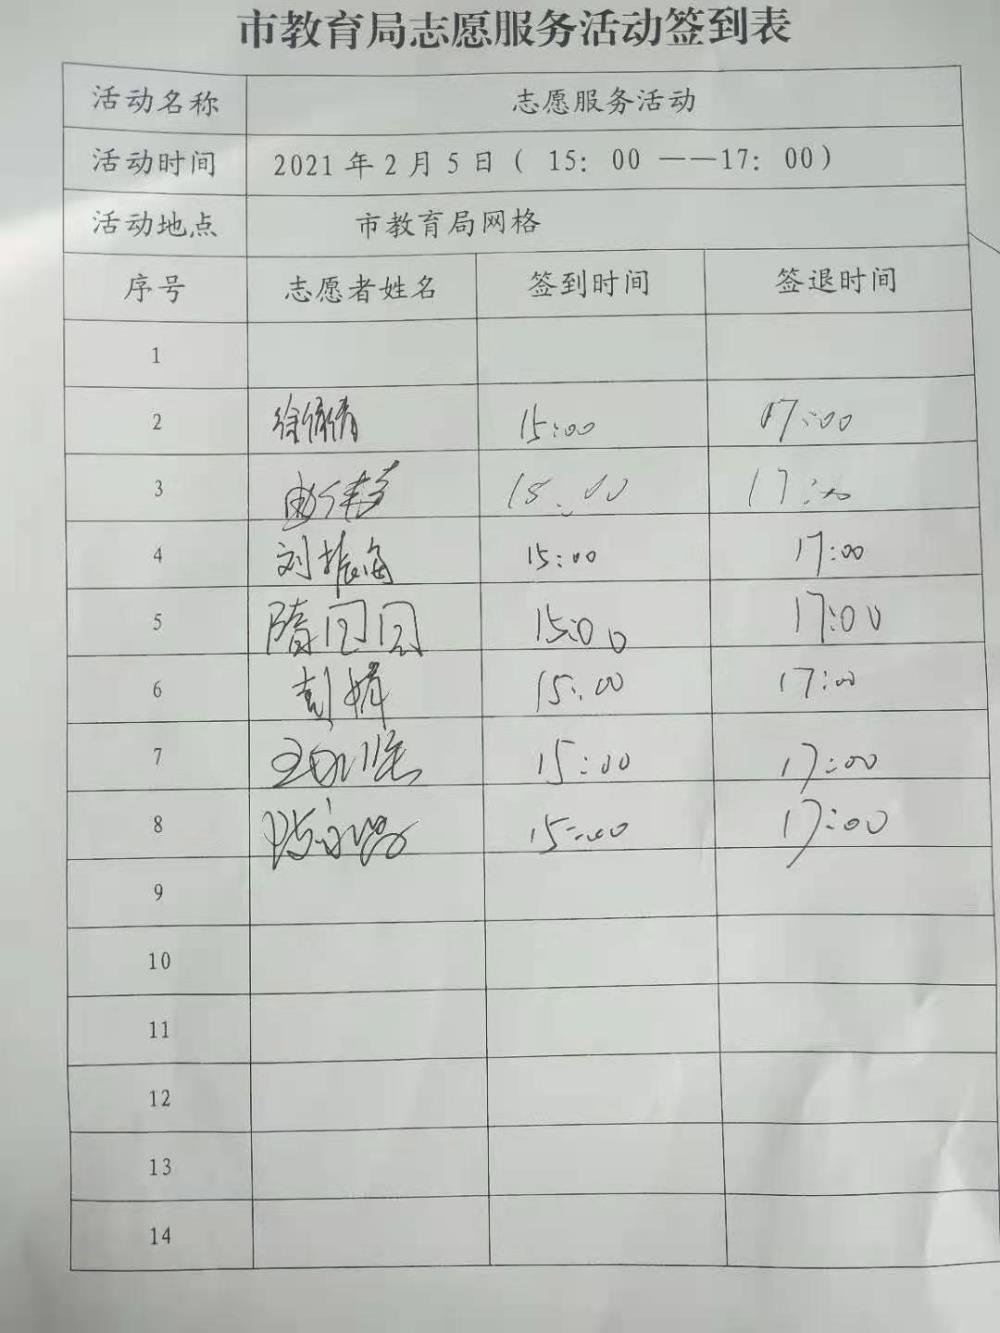 市教育局志愿服务活动签到表
活动名称 志愿服务活动
活动时间 2021年2月5日( 15: 00 ——17: 00)
活动地点 市教育局网格
序号 志愿者姓名 签到时间 签退时间
1
2 徐倩倩 15:00 17:00
3 15:00 17:00
4 刘振海 15:00 17:00
5 隋囝囝 15:00 17:00
6 彭娟 15:00 17:00
7 15:00 17:00
8 15:00 17:00
9
10
11
12
13
14